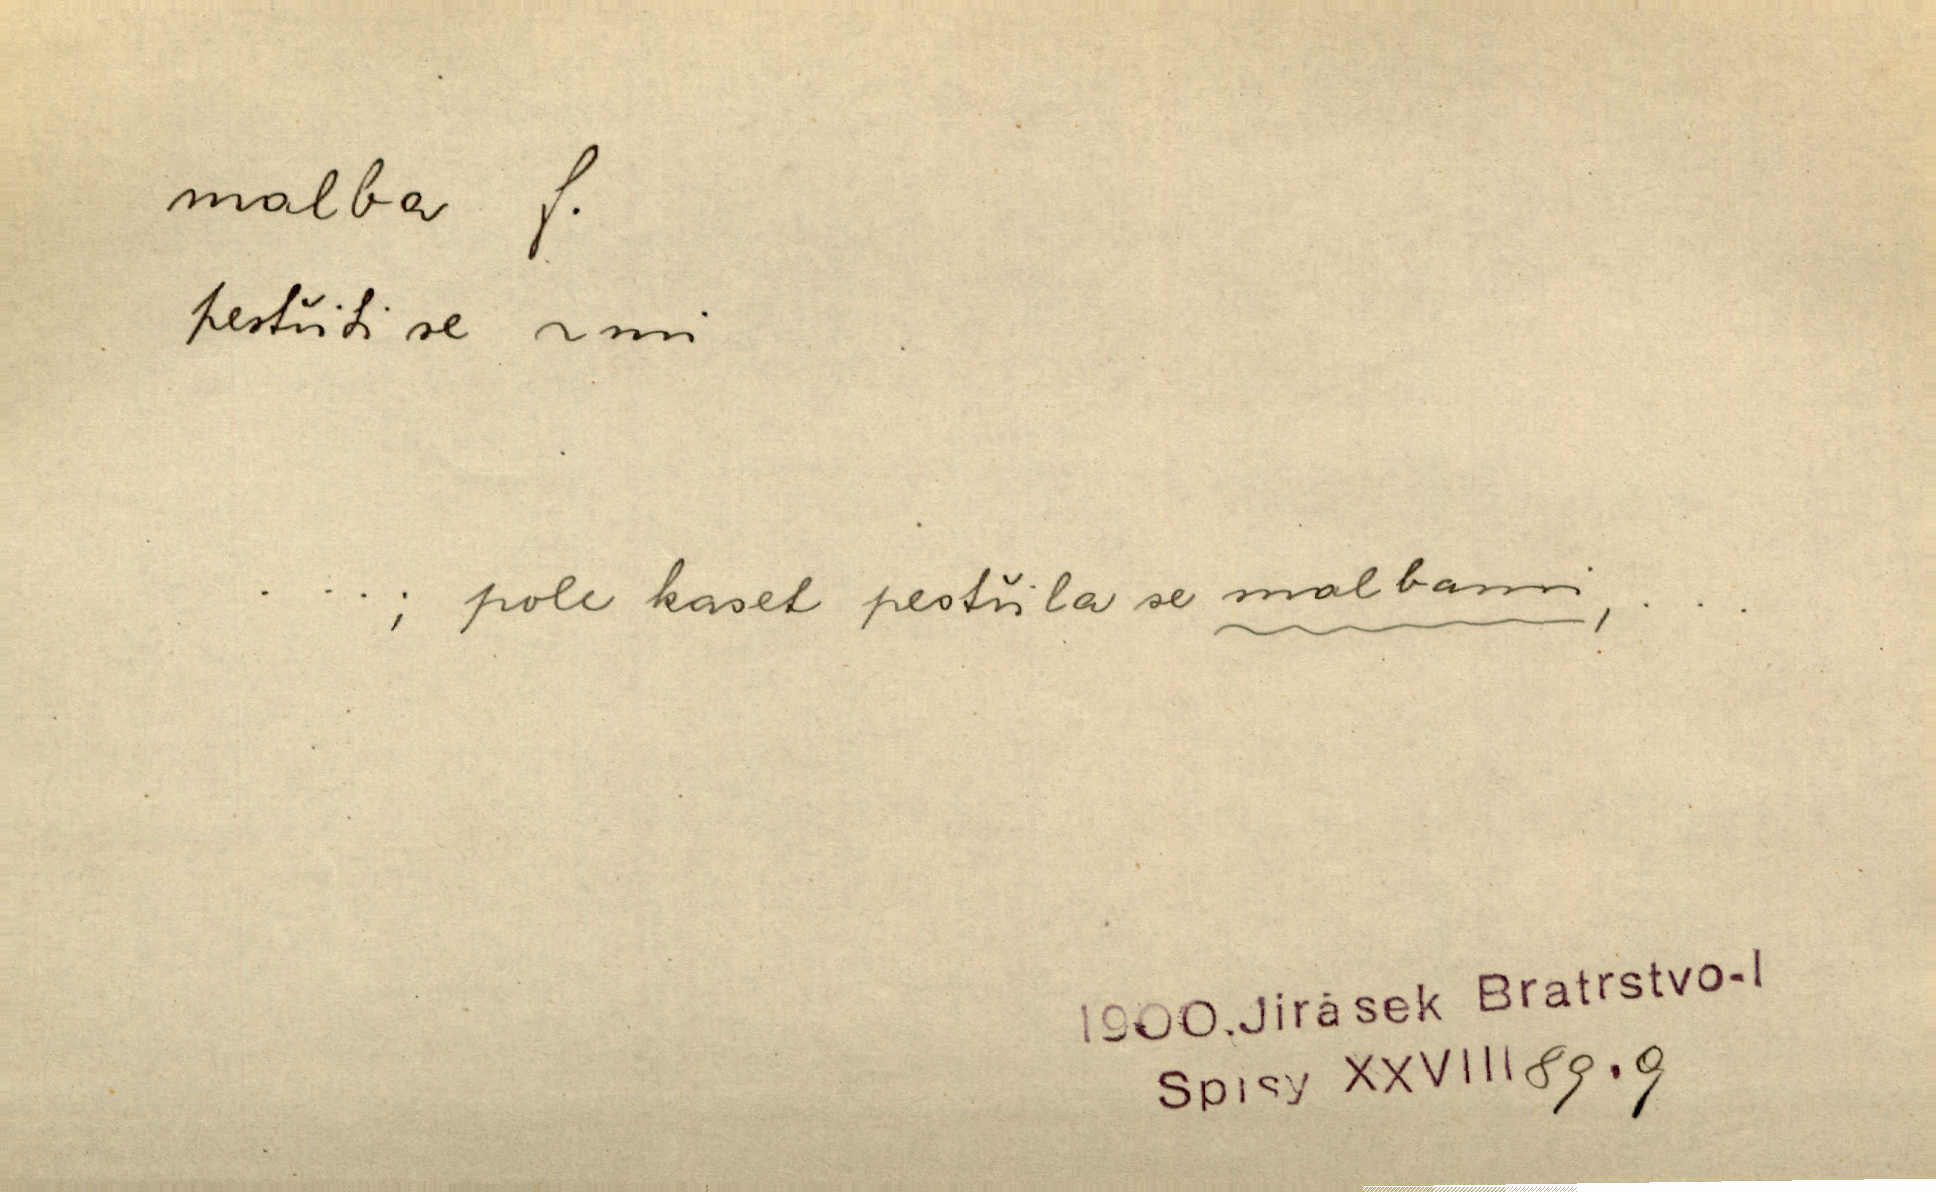 malba f.
pestřiti se ~mi
. ...; pole kaset pestřila se malbami, ...
1900. Jirásek Bratrstvo-I
Spisy XXVIII 89.9